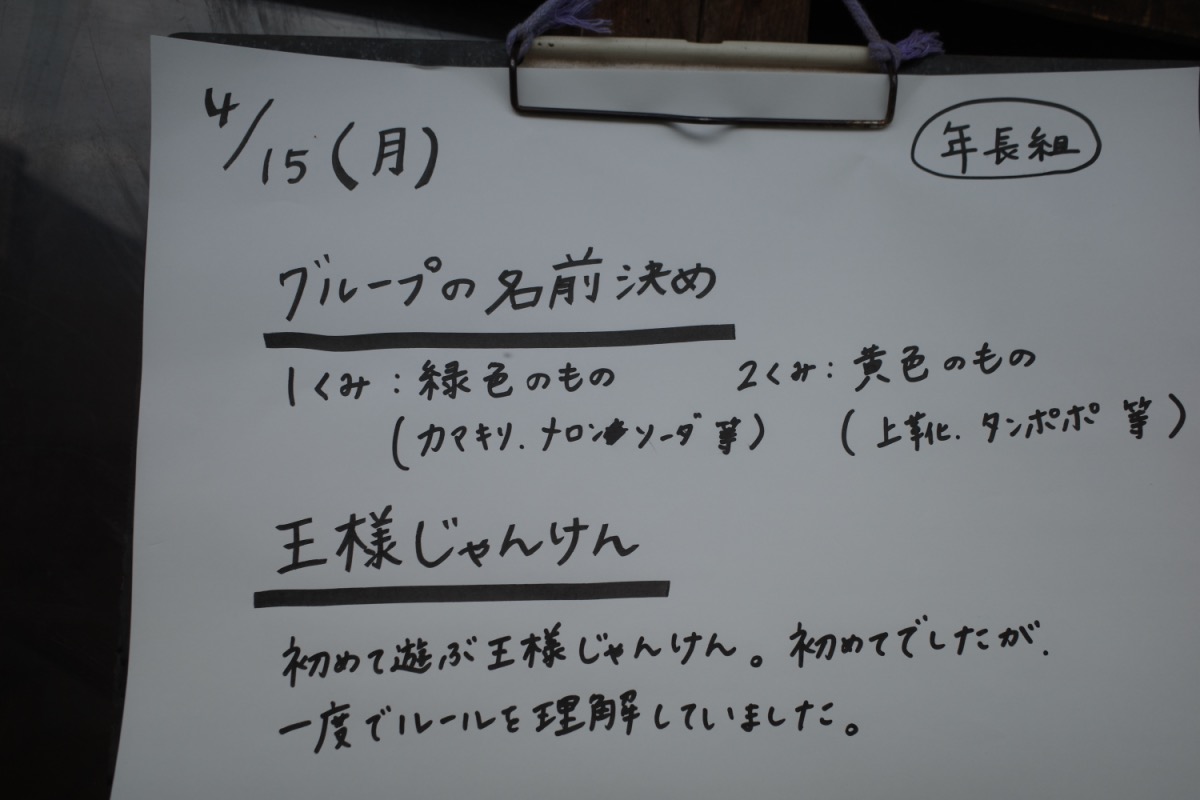 4/15(月)
年長組
グループの名前決め
1くみ：緑色のもの 2くみ：黄色のもの
(カマキリ、メロンソーダ 等) (上靴、タンポポ 等)
王様じゃんけん
初めて遊ぶ王様じゃんけん。初めてでしたが、
一度でルールを理解していました。